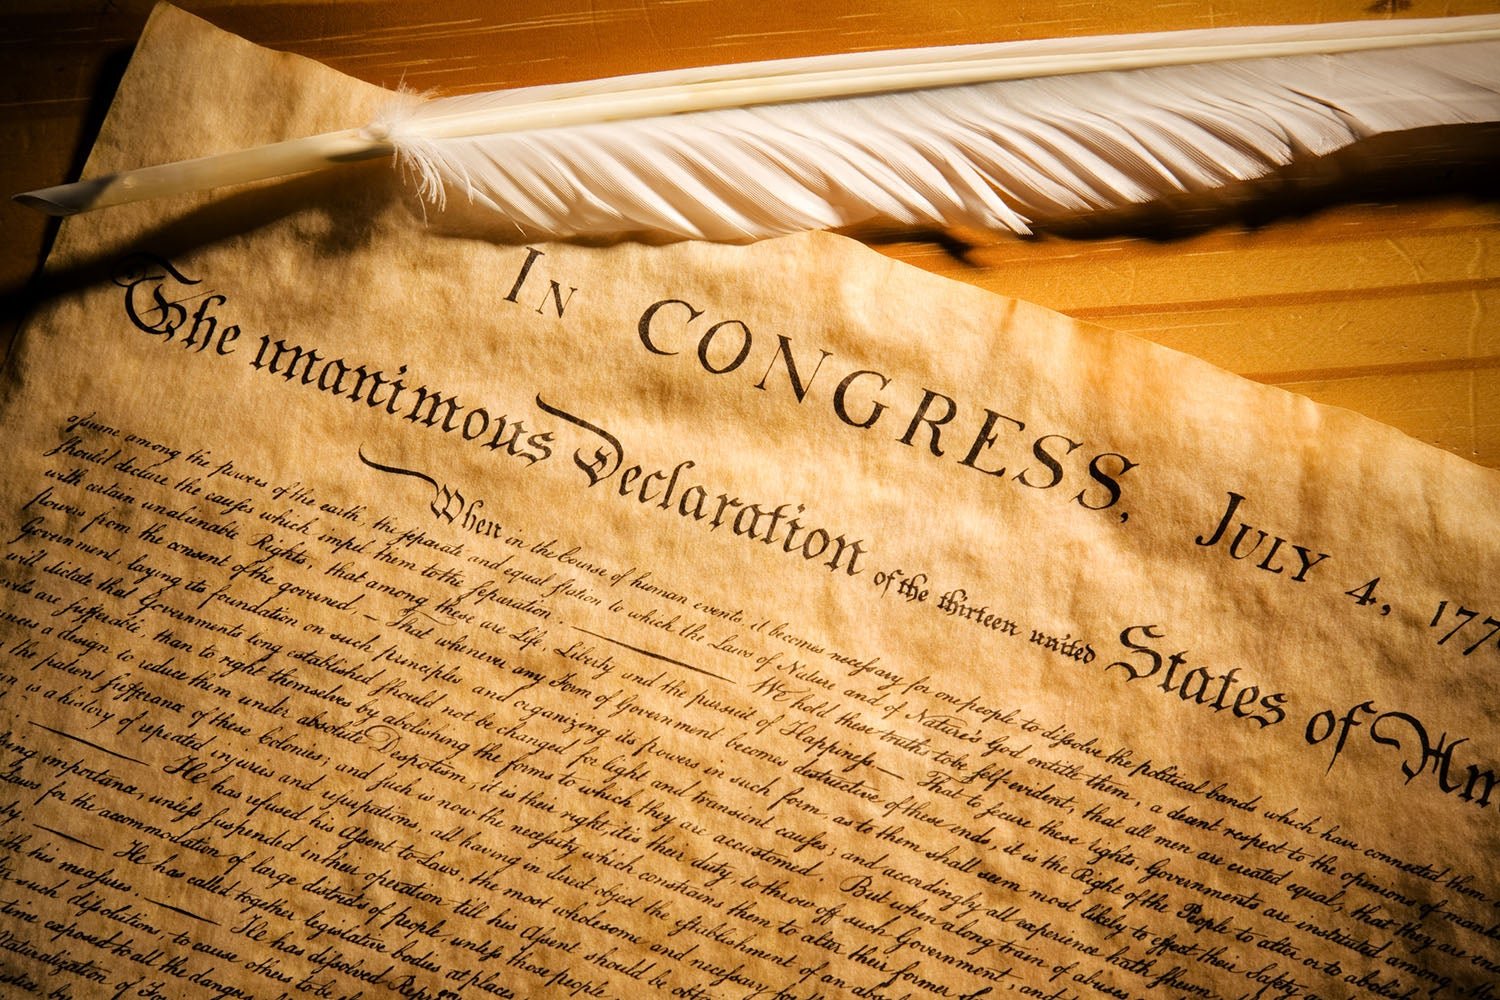 In CONGRESS, July 4, 177
The unanimous Declaration of the thirteen united States of Am
When in the Course of human events, it becomes necessary for one people to dissolve the political bands which have connected them
assume among the powers of the earth, the separate and equal station to which the Laws of Nature and of Nature's God entitle them, a decent respect to the opinions of mank
should declare the causes which impel them to the separation. We hold these truths to be self-evident, that all men are created equal, that they are en
with certain unalienable Rights, that among these are Life, Liberty and the pursuit of Happiness — That to secure these rights, Governments are instituted among
powers from the consent of the governed, — That whenever any Form of Government becomes destructive of these ends, it is the Right of the People to alter or to abolish
Government, laying its foundation on such principles and organizing its powers in such form, as to them shall seem most likely to effect their Safety
will dictate that Governments long established should not be changed for light and transient causes; and accordingly all experience hath shewn
are sufferable, than to right themselves by abolishing the forms to which they are accustomed. But when a long train of abuses
a design to reduce them under absolute Despotism, it is their right, it is their duty, to throw off such Government, and
the patient sufferance of these Colonies; and such is now the necessity which constrains them to alter their former
is a history of repeated injuries and usurpations, all having in direct object the establishment of an
He has refused his Assent to Laws, the most wholesome and necessary for
importance, unless suspended in their operation till his Assent should be
Laws for the accommodation of large districts of people, unless those people
He has called together legislative bodies at places
his measures. He has dissolved
such dissolutions, to cause others to be
time exposed to all the dangers
Naturalization of